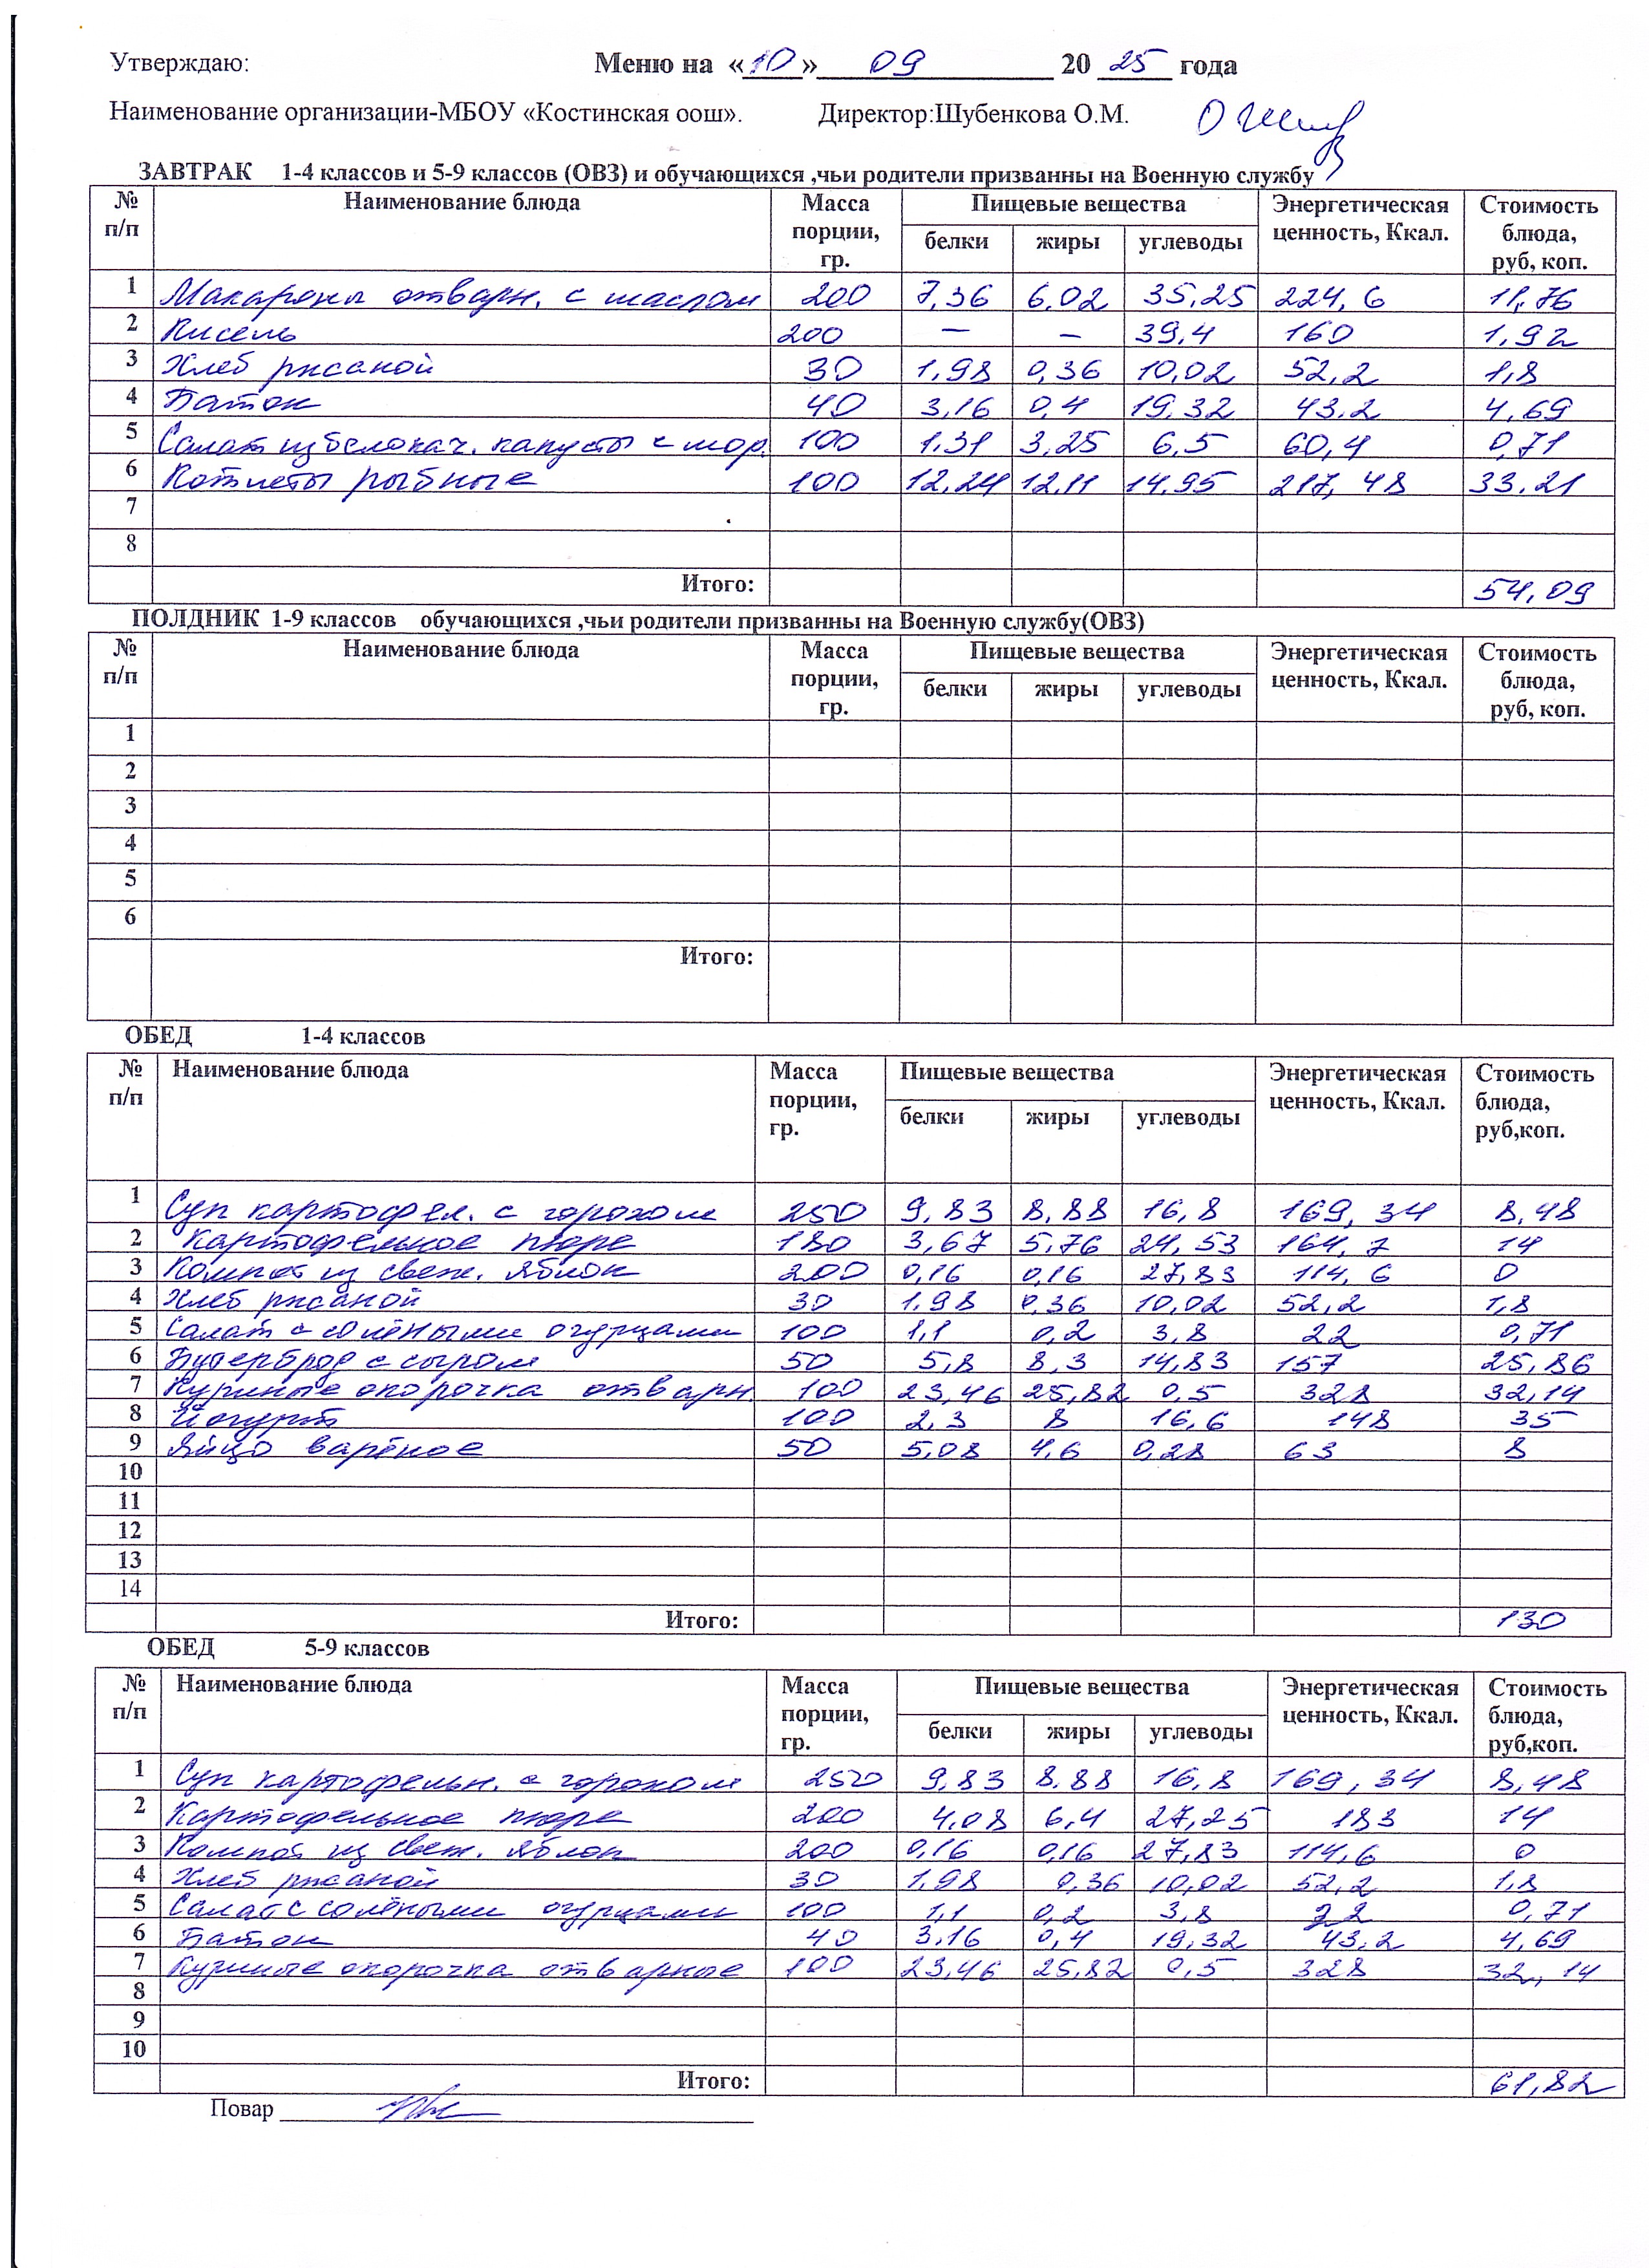 Утверждаю: Меню на «10» 09 2025 года
Наименование организации-МБОУ «Костинская оош». Директор:Шубенкова О.М.
ЗАВТРАК 1-4 классов и 5-9 классов (ОВЗ) и обучающихся ,чьи родители призванны на Военную службу
№ п/п Наименование блюда Масса порции, гр. Пищевые вещества Энергетическая ценность, Ккал. Стоимость блюда, руб, коп.
белки жиры углеводы
1 Макароны отварн. с маслом 200 7,36 6,02 35,25 224,6 11,76
2 Кисель 200 — – 39,4 160 1,92
3 Хлеб ржаной 30 1,98 0,36 10,02 52,2 1,8
4 Батон 40 3,16 0,4 19,32 43,2 4,69
5 Салат из белокач. капусты с мор. 100 1,31 3,25 6,5 60,4 0,71
6 Котлеты рыбные 100 12,24 12,11 14,95 217,48 33,21
7
8
Итого: 54,09
ПОЛДНИК 1-9 классов обучающихся ,чьи родители призванны на Военную службу(ОВЗ)
№ п/п Наименование блюда Масса порции, гр. Пищевые вещества Энергетическая ценность, Ккал. Стоимость блюда, руб, коп.
белки жиры углеводы
1
2
3
4
5
6
Итого:
ОБЕД 1-4 классов
№ п/п Наименование блюда Масса порции, гр. Пищевые вещества Энергетическая ценность, Ккал. Стоимость блюда, руб,коп.
белки жиры углеводы
1 Суп картофел. с горохом 250 9,83 8,88 16,8 169,34 8,48
2 Картофельное пюре 180 3,67 5,76 24,53 164,7 14
3 Компот из свеж. яблок 200 0,16 0,16 27,83 114,6 0
4 Хлеб ржаной 30 1,98 0,36 10,02 52,2 1,8
5 Салат с солёными огурцами 100 1,1 0,2 3,8 22 0,71
6 Бутерброд с сыром 50 5,8 8,3 14,83 157 25,86
7 Куриные окорочка отварн. 100 23,46 25,82 0,5 328 32,14
8 Йогурт 100 2,3 8 16,6 148 35
9 Яйцо варёное 50 5,08 4,6 0,28 63 8
10
11
12
13
14
Итого: 130
ОБЕД 5-9 классов
№ п/п Наименование блюда Масса порции, гр. Пищевые вещества Энергетическая ценность, Ккал. Стоимость блюда, руб,коп.
белки жиры углеводы
1 Суп картофельн. с горохом 250 9,83 8,88 16,8 169,34 8,48
2 Картофельное пюре 200 4,08 6,4 27,25 183 14
3 Компот из свеж. яблок 200 0,16 0,16 27,83 114,6 0
4 Хлеб ржаной 30 1,98 0,36 10,02 52,2 1,8
5 Салат с солёными огурцами 100 1,1 0,2 3,8 22 0,71
6 Батон 40 3,16 0,4 19,32 43,2 4,69
7 Куриные окорочка отварные 100 23,46 25,82 0,5 328 32,14
8
9
10
Итого: 61,82
Повар